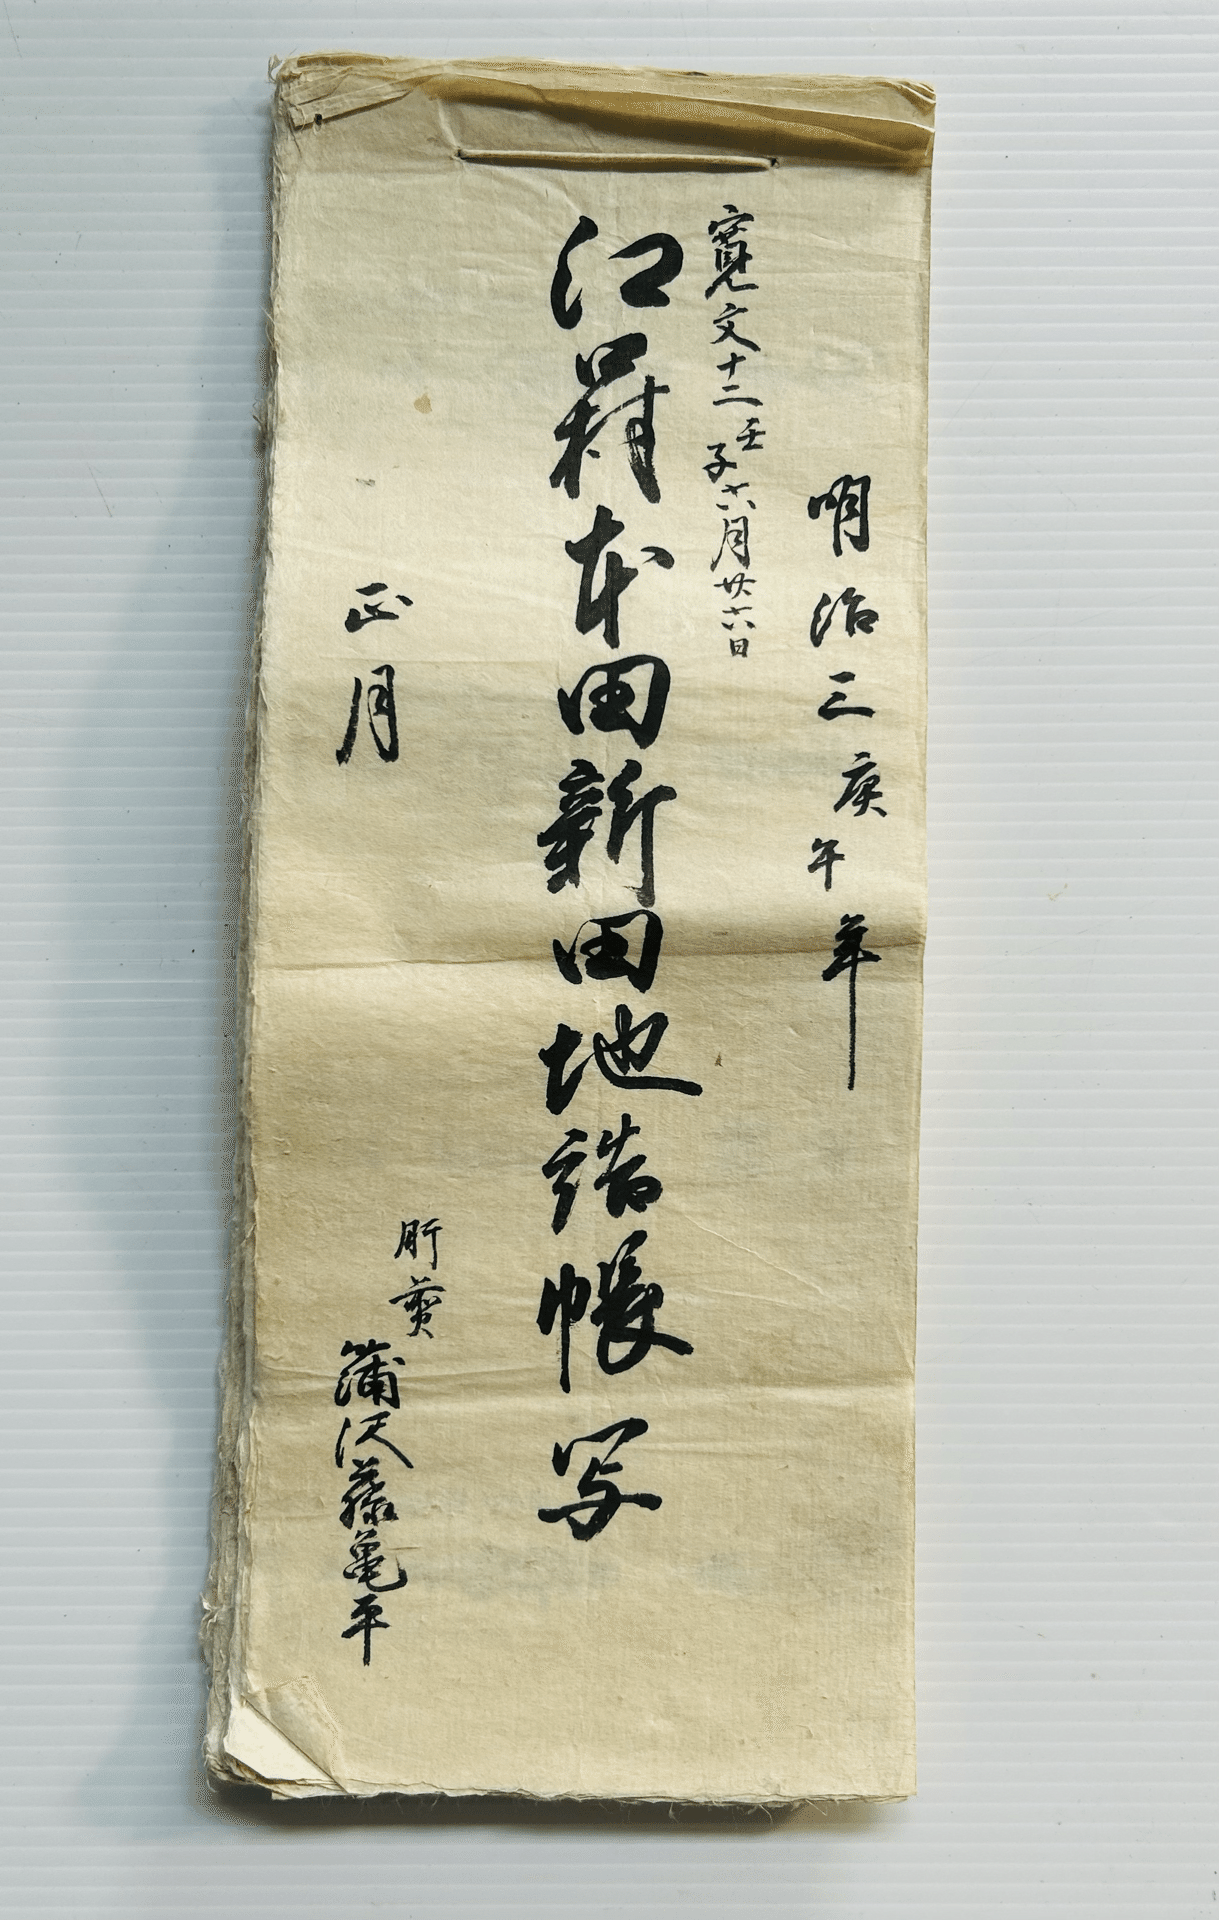 明治三庚午年
寛文十二壬子六月廿六日
江口村本田新田地詰帳写
正月
肝煎
蒲沢藤亀平